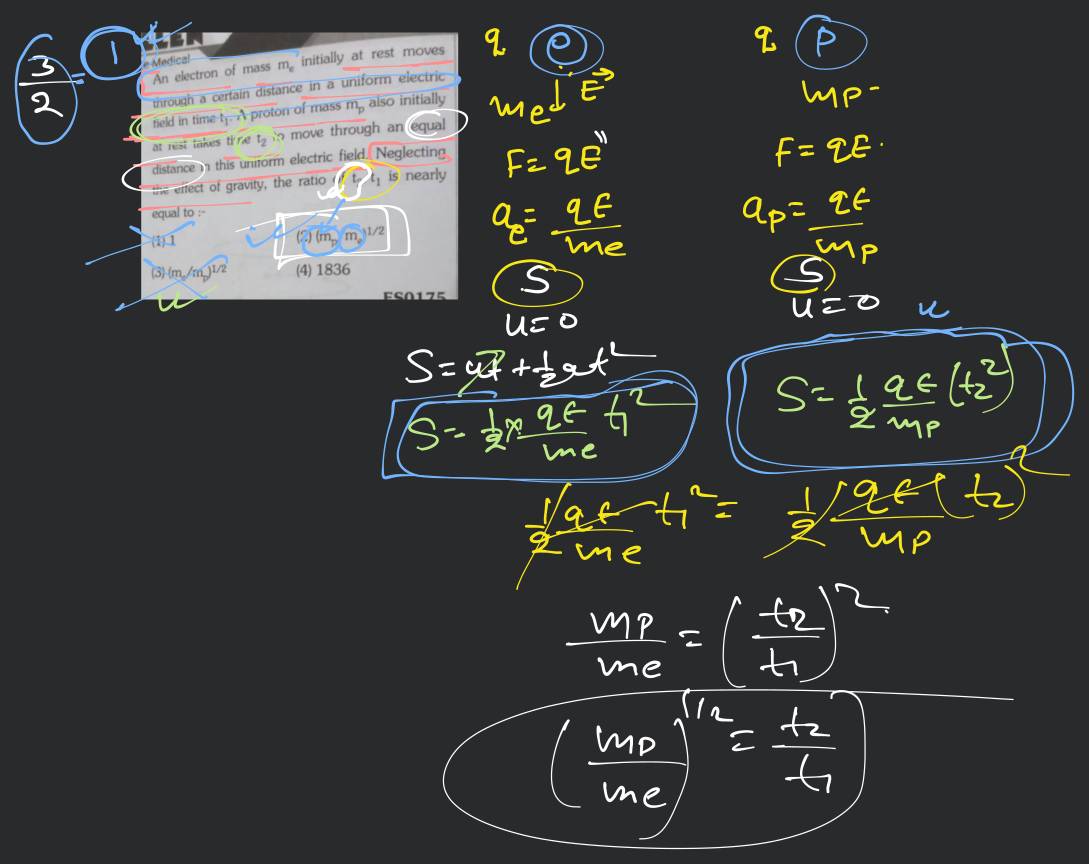 3/2 = 1
Medical
An electron of mass mₑ initially at rest moves
through a certain distance in a uniform electric
field in time t₁. A proton of mass mₚ also initially
at rest takes time t₂ to move through an equal
distance in this uniform electric field. Neglecting
the effect of gravity, the ratio t₂ t₁ is nearly
equal to :-
(1) 1
(2) (mₚ mₑ)^1/2
(3) (mₑ/mₚ)^1/2
(4) 1836
ES0175
q e
me ↓ E→
F = qE
aₑ = qE/me
S
u = 0
S = ut + 1/2 at²
S = 1/2 × qE/me t₁²
q P
mp
F = qE
ap = qE/mp
S
u = 0
S = 1/2 qE/mp (t₂²)
1/2 qE/me t₁² = 1/2 qE/mp (t₂)²
mp/me = (t₂/t₁)²
(mp/me)^1/2 = t₂/t₁